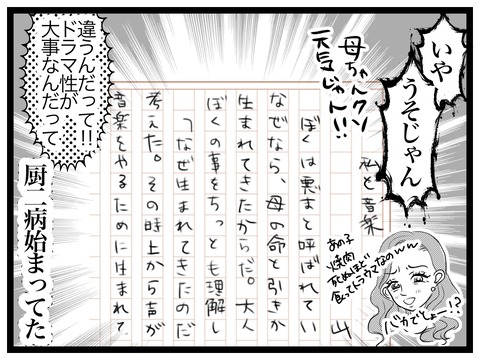 いや
うそじゃん
母ちゃんクソ
元気じゃん!!
私と音楽 山
ぼくは悪まと呼ばれてい
なぜなら、母の命と引きか
生まれてきたからだ。大人
ぼくの事をちっとも理解し
「なぜ生まれてきたのだ
考えた。その時上から声が
音楽をやるために生まれて
あの子
焼肉
死ぬほど
食ってトラウマなのww
バカでしょー!?
違うんだって!!
ドラマ性が
大事なんだって
厨二病始まってた